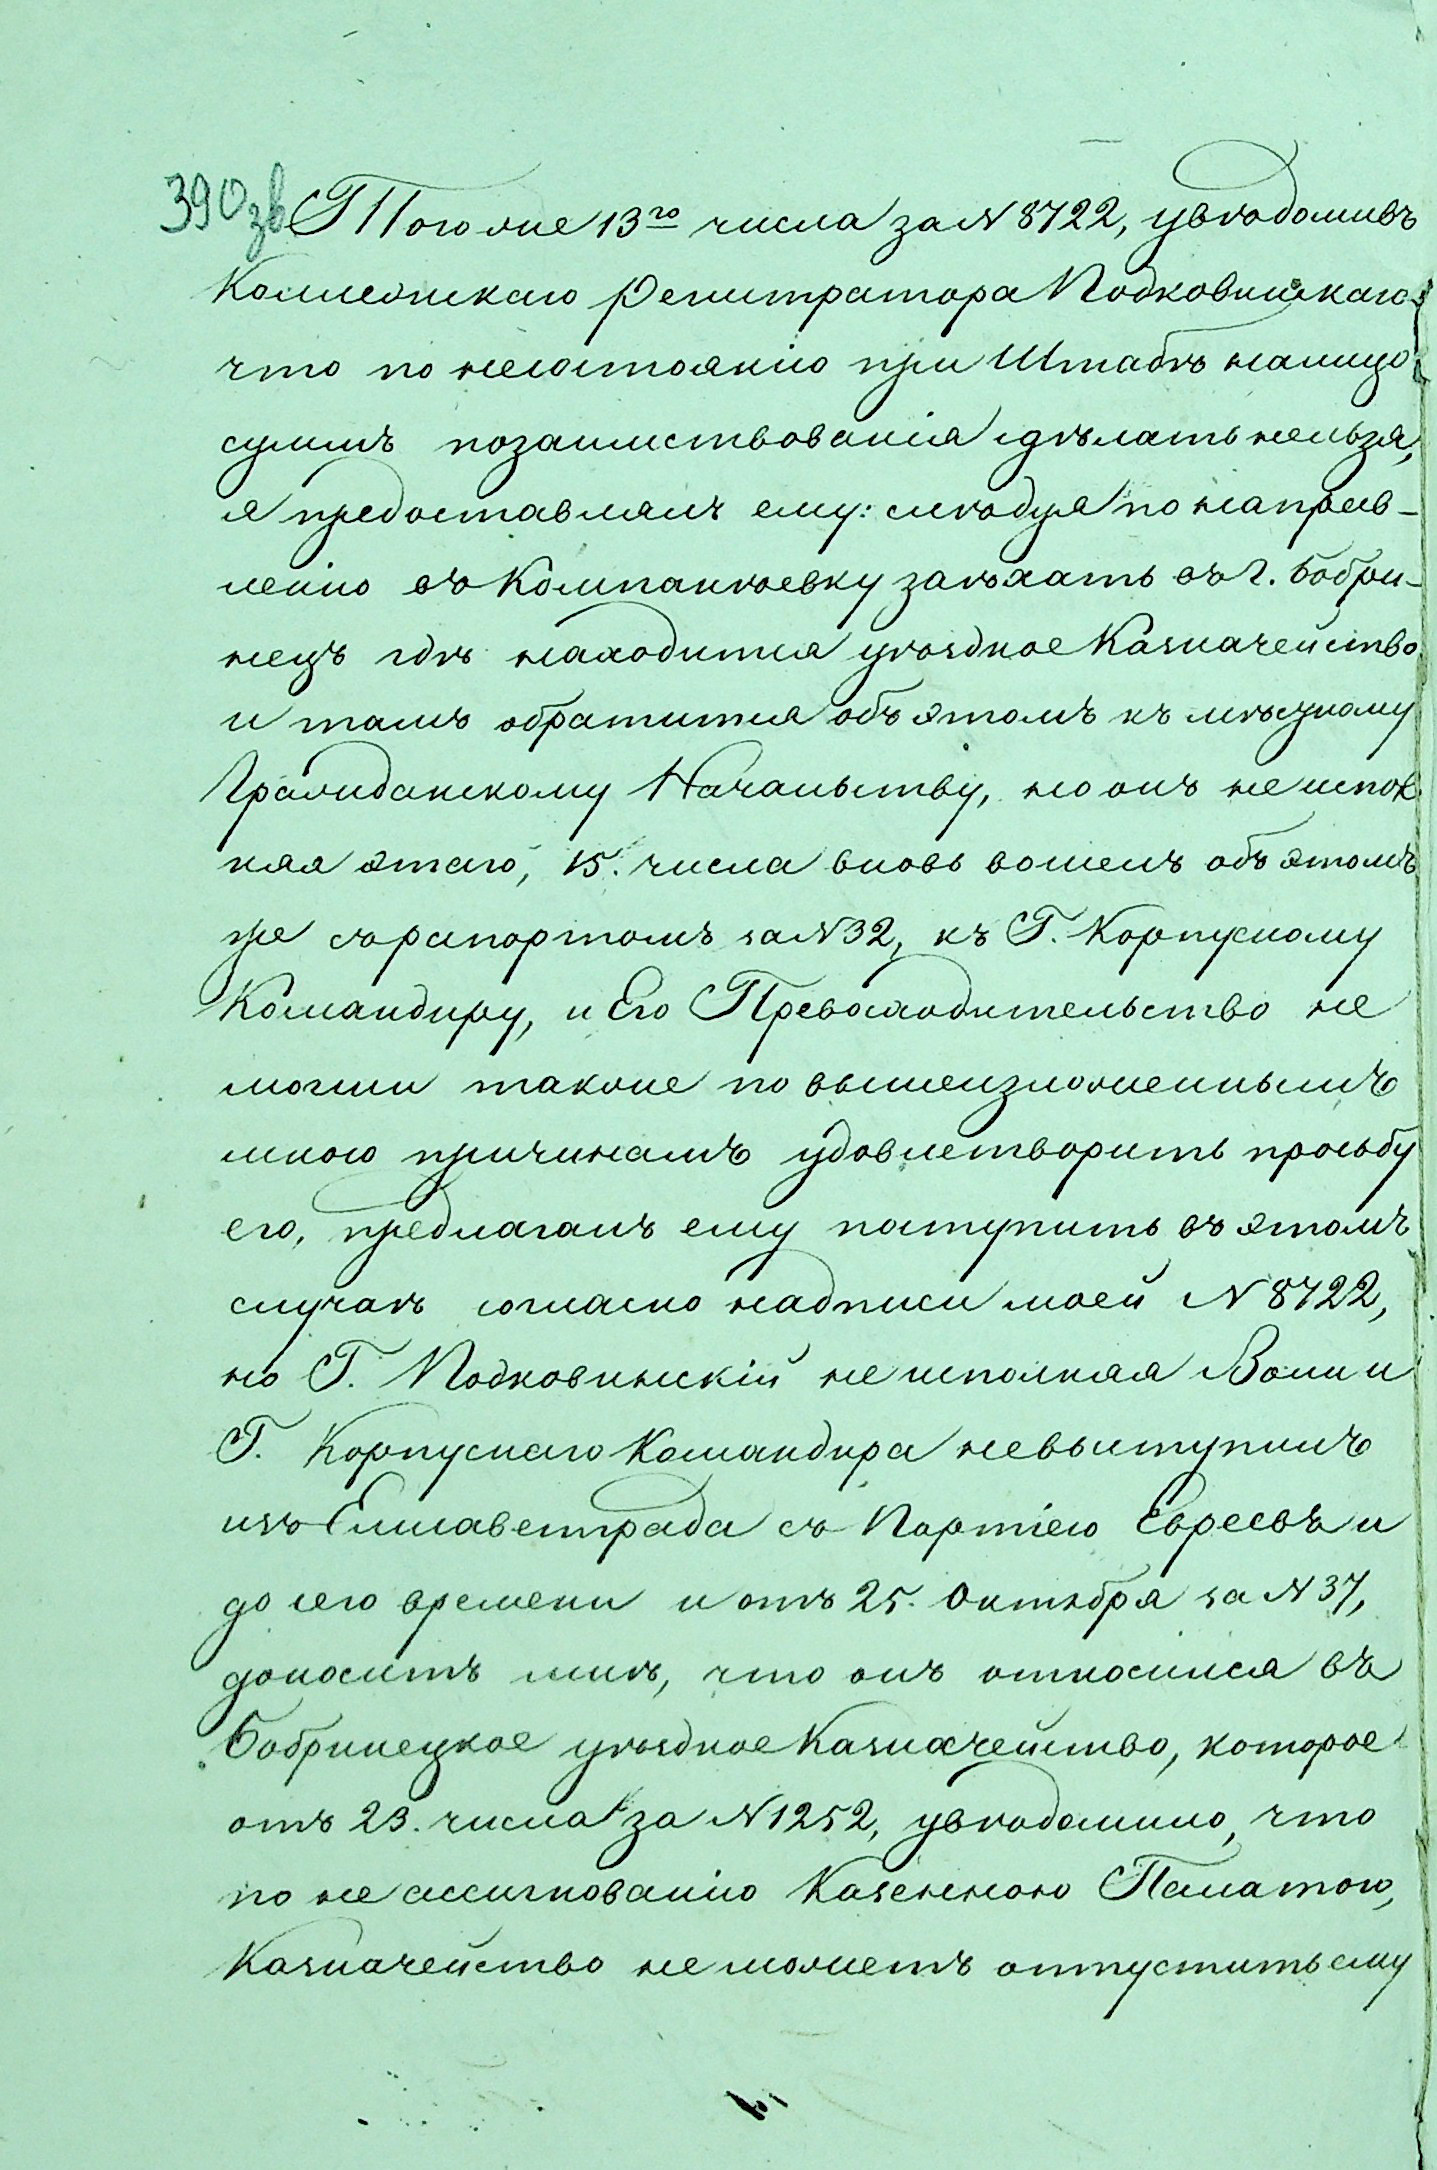 390зв Того же 13го числа за N 8722, увѣдомивъ
Коллежскаго Регистратора Подковинскаго
что по несостоянію при Штабѣ налицо
суммъ позаимствованія сдѣлать нельзя,
я предоставлялъ ему: слѣдуя по направ-
ленію въ Компанѣевку заѣхать въ г. Бобри-
нецъ гдѣ находится уѣздное Казначейство
и тамъ обратится объ этомъ къ мѣстному
Гражданскому Начальству, но онъ не испол-
няя этаго, 15. числа вновь вошелъ объ этомъ
же съ рапортомъ за N 32, къ Г. Корпусному
Командиру, и Его Превосходительство не
могши также по вышеизложеннымъ
мною причинамъ удовлетворить просьбу
его, предлагалъ ему поступить въ этомъ
случаѣ согласно надписи моей N 8722,
но Г. Подковинскій не исполняя Воли и
Г. Корпуснаго Командира невыступилъ
изъ Елисаветграда съ Партіею Евреевъ и
до сего времени и отъ 25. Октября за N 37,
доноситъ мнѣ, что онъ относился въ
Бобринецкое уѣздное Казначейство, которое
отъ 23. числа за N 1252, увѣдомило, что
по не ассигнованію Казенною Палатою,
Казначейство не можетъ отпустить ему